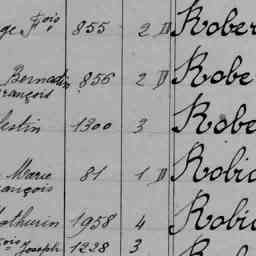 ge Fçois 855 2 D Rober
Bernadin
François 856 2 D Robe
lestin 1300 3 Robe
Marie
ançois 81 1 D Robic
athurin 1958 4 Robic
çois Joseph 1228 3